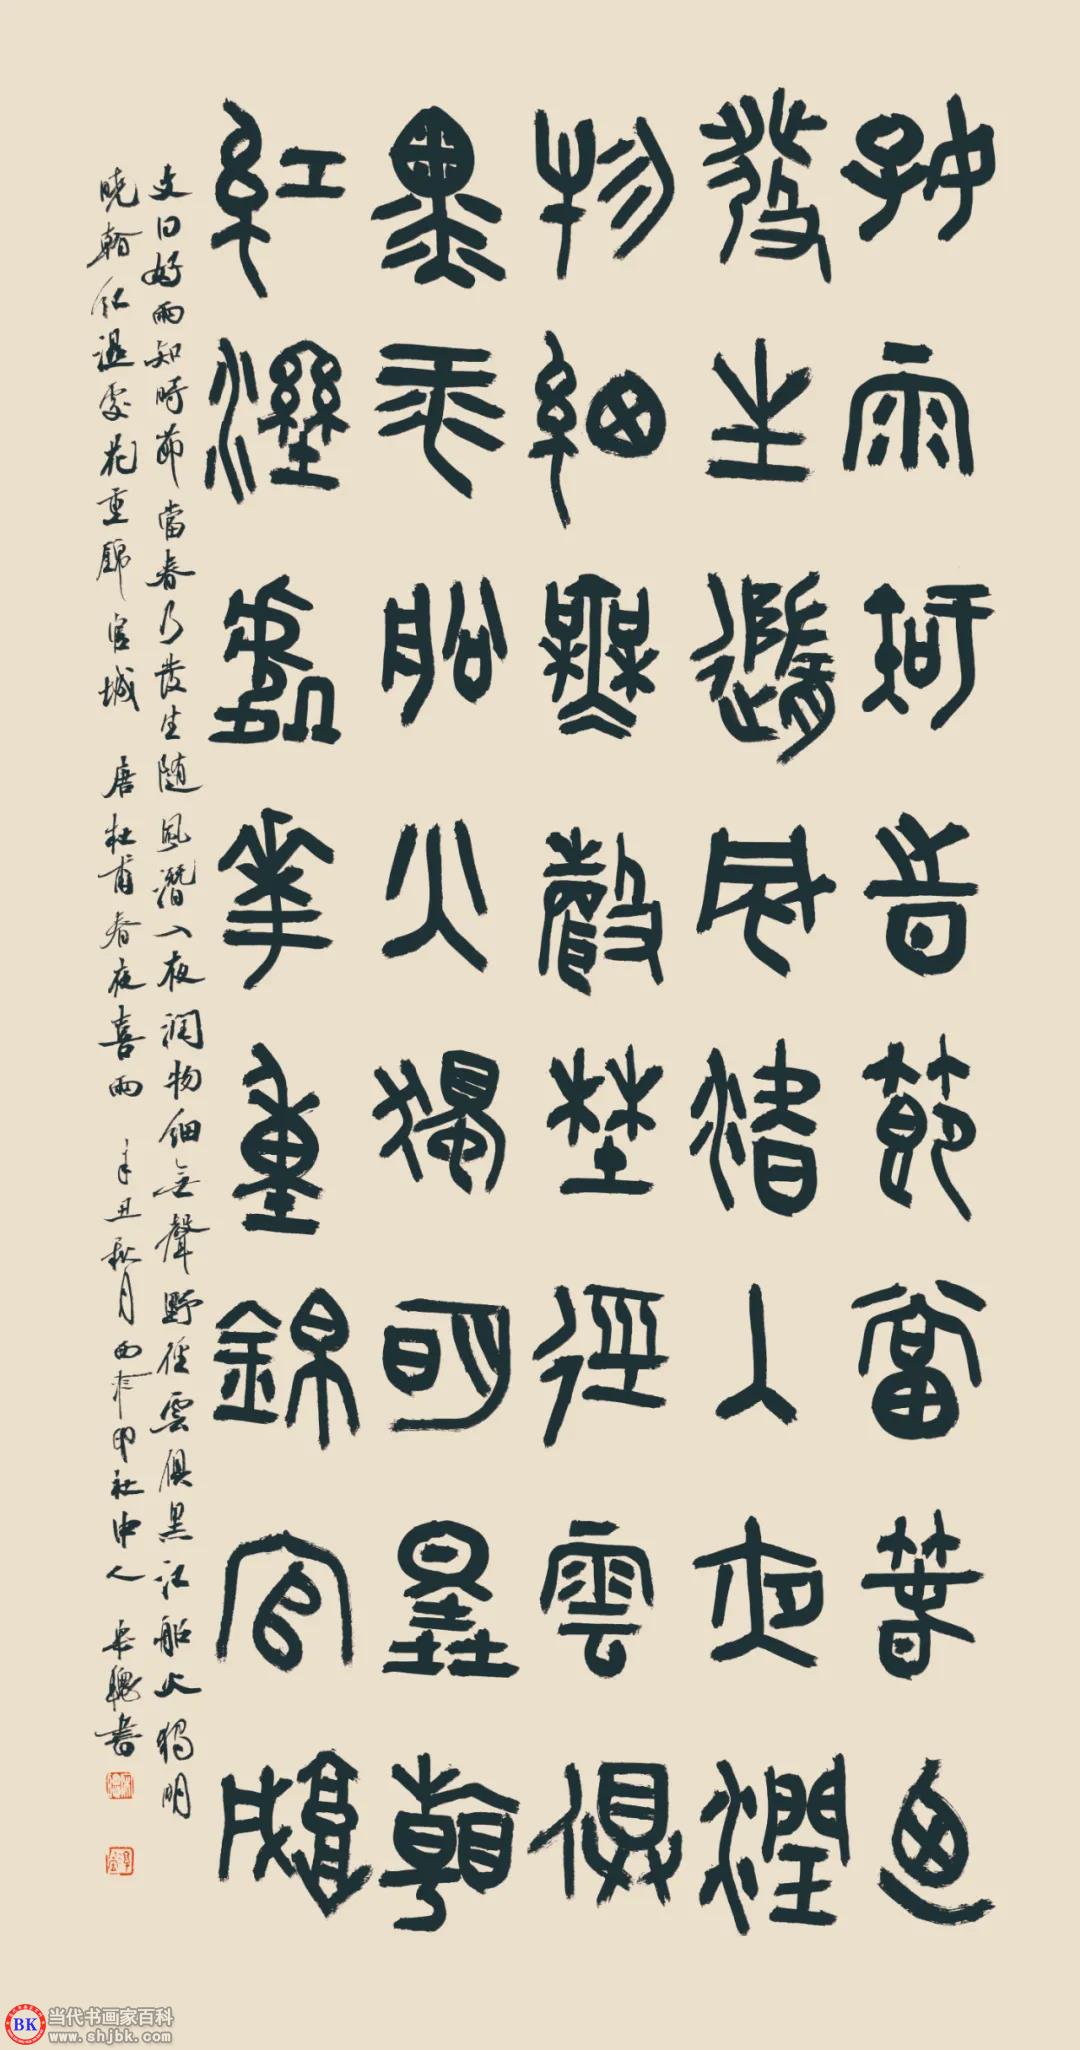 好雨知時節當春乃
發生隨風潛入夜潤
物細無聲野徑雲俱
黑江船火獨明曉
紅濕處花重錦官城
文曰好雨知時節當春乃發生随風潛入夜润物細無聲野徑雲俱黑江船火獨明
曉看紅濕處花重錦官城 唐杜甫春夜喜雨 辛丑秋月西泠印社中人 書
当代书画家百科
www.shjbk.com
BK